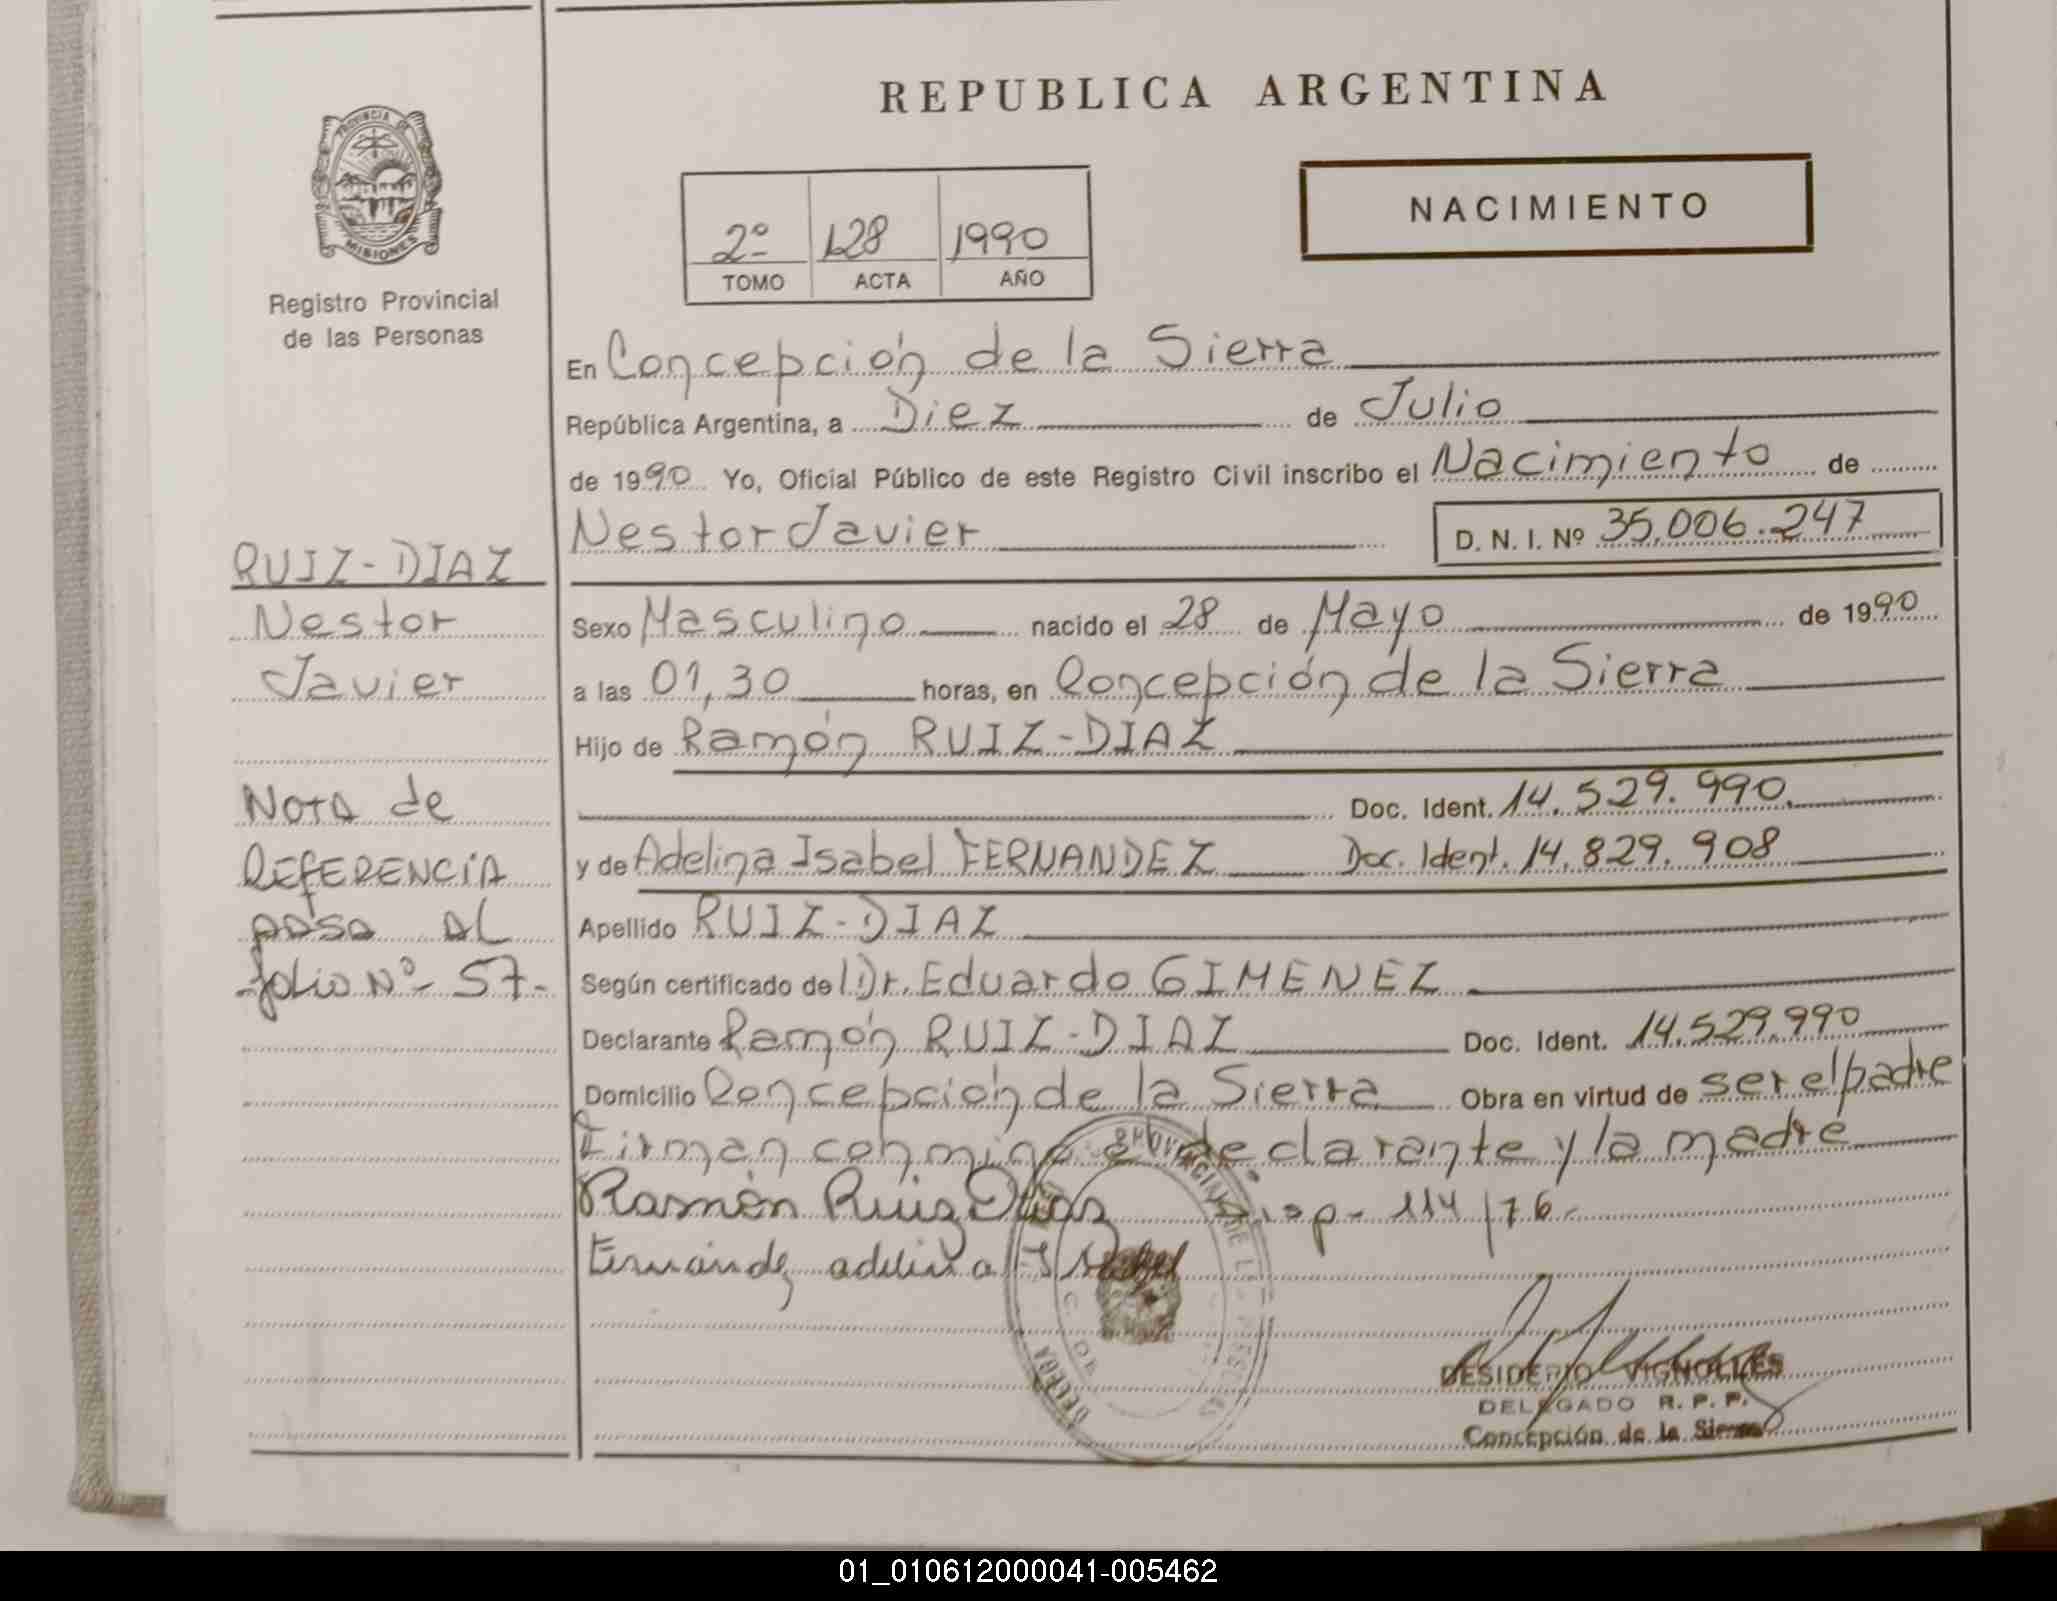 REPUBLICA ARGENTINA
PROVINCIA DE
MISIONES
Registro Provincial
de las Personas
2º 128 1990
TOMO ACTA AÑO
NACIMIENTO
En Concepción de la Sierra
República Argentina, a Diez de Julio
de 1990 Yo, Oficial Público de este Registro Civil inscribo el Nacimiento de
Nestor Javier D. N. I. Nº 35.006.247
RUIZ-DIAZ
Nestor
Javier
Sexo Masculino nacido el 28 de Mayo de 1990
a las 01,30 horas, en Concepción de la Sierra
Hijo de Ramón RUIZ-DIAZ
Doc. Ident. 14.529.990
y de Adelina Isabel FERNANDEZ Doc. Ident. 14.829.908
Apellido RUIZ-DIAZ
Según certificado de Dr. Eduardo GIMENEZ
Declarante Ramón RUIZ-DIAZ Doc. Ident. 14.529.990
Domicilio Concepción de la Sierra Obra en virtud de ser el padre
Firman conmigo el declarante y la madre
NOTA de
REFERENCIA
pasa AL
folio Nº 57-
Ramón Ruiz Diaz Disp- 114/76-
Fernández adelina Isabel
DESIDERIO VIGNOLLES
DELEGADO R. P. P.
Concepción de la Sierra
01_010612000041-005462